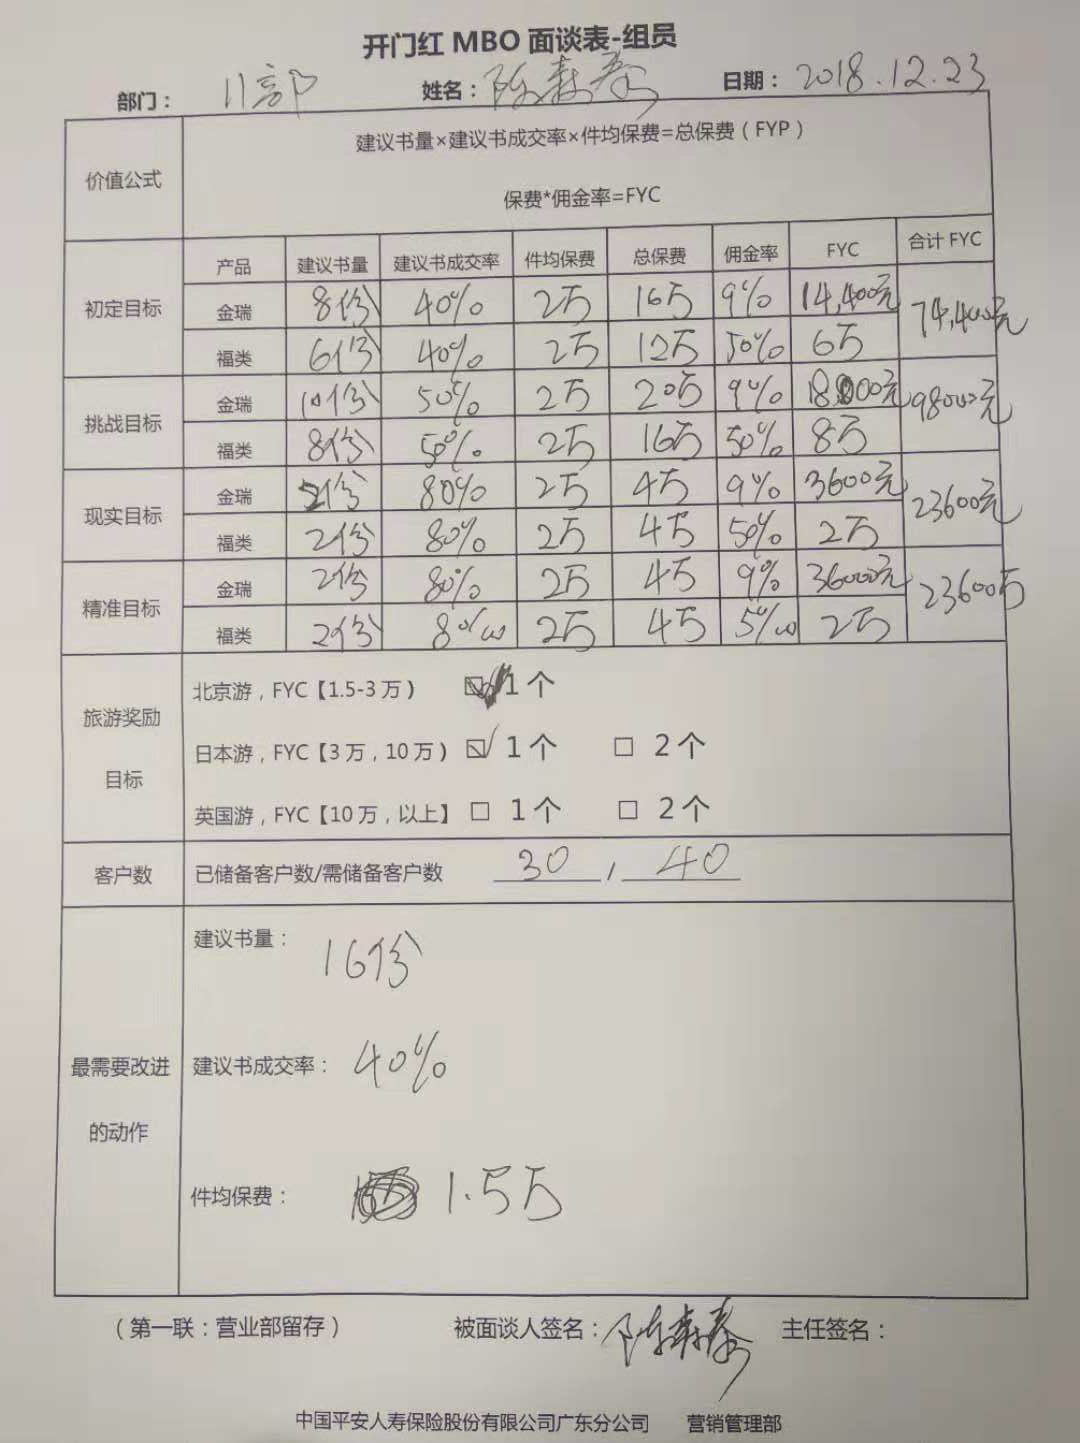 开门红 MBO 面谈表-组员
部门： 11部 姓名： 陈森泰 日期： 2018.12.23
价值公式
建议书量×建议书成交率×件均保费=总保费（FYP）
保费*佣金率=FYC
产品 建议书量 建议书成交率 件均保费 总保费 佣金率 FYC 合计 FYC
初定目标
金瑞 8份 40% 2万 16万 9% 14,400元 74,400元
福类 6份 40% 2万 12万 50% 6万
挑战目标
金瑞 10份 50% 2万 20万 9% 18000元 98000元
福类 8份 50% 2万 16万 50% 8万
现实目标
金瑞 2份 80% 2万 4万 9% 3600元 23600元
福类 2份 80% 2万 4万 50% 2万
精准目标
金瑞 2份 80% 2万 4万 9% 3600元 23600万
福类 2份 80% 2万 4万 50% 2万
旅游奖励
目标
北京游，FYC【1.5-3 万） 1 个
日本游，FYC【3 万，10 万） ☑ 1 个 □ 2 个
英国游，FYC【10 万，以上】 □ 1 个 □ 2 个
客户数 已储备客户数/需储备客户数 30 / 40
最需要改进
的动作
建议书量： 16份
建议书成交率： 40%
件均保费： 1.5万
（第一联：营业部留存） 被面谈人签名： 陈森泰 主任签名：
中国平安人寿保险股份有限公司广东分公司 营销管理部